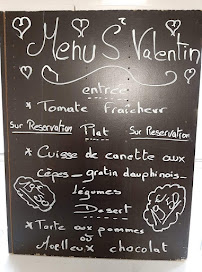 Menu St Valentin
entrée
* Tomate fraîcheur
Sur Reservation Plat Sur Reservation
* Cuisse de canette aux
Cèpes _ gratin dauphinois _
légumes
Dessert
* Tarte aux pommes
où
Moelleux chocolat